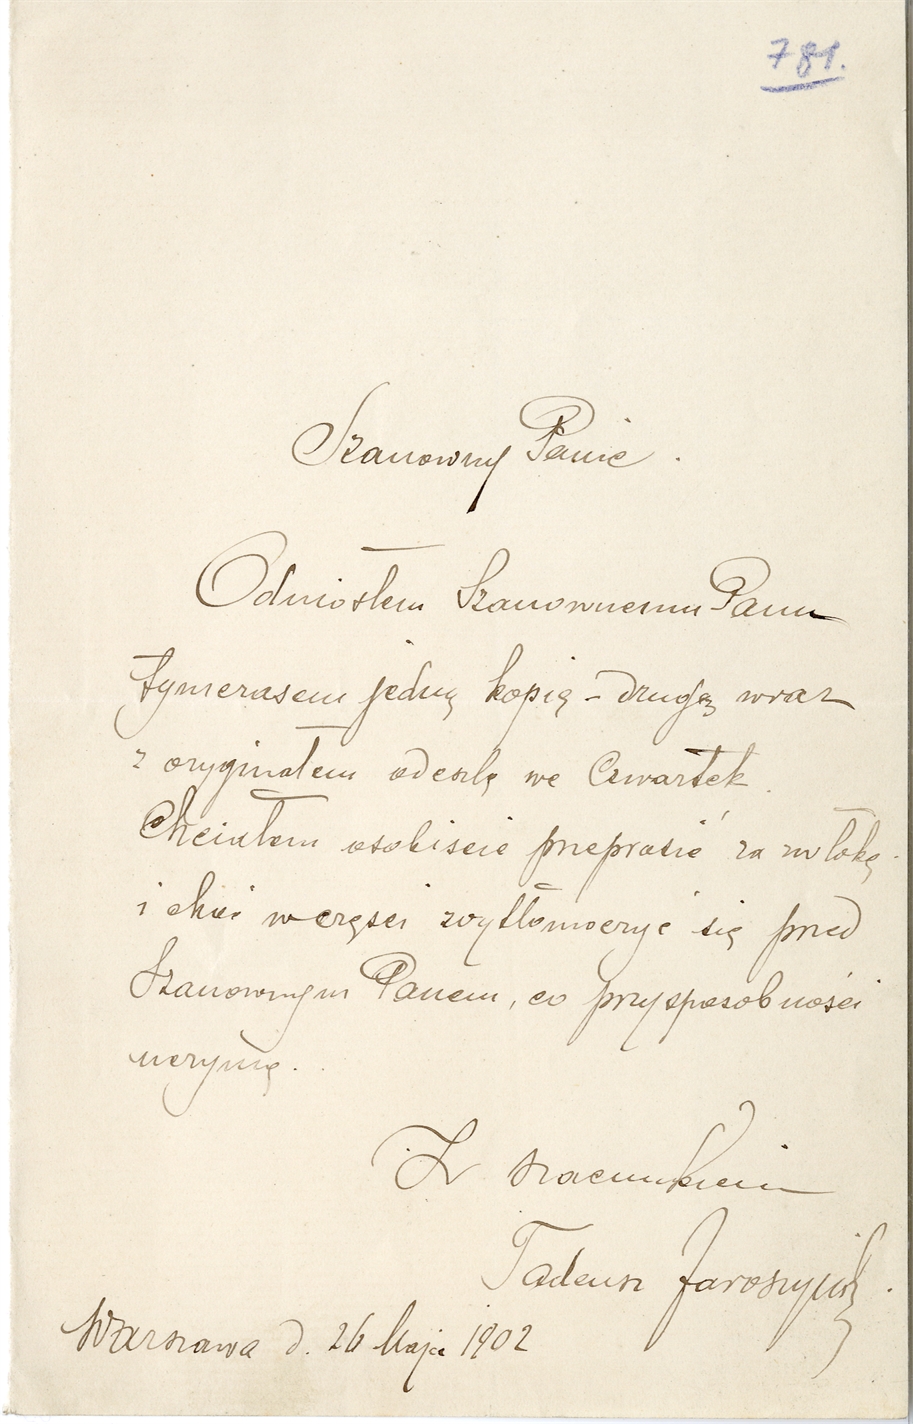 781.
Szanowny Panie.
Odniosłem Szanownemu Panu
tymczasem jedną kopię – drugą wraz
z oryginałem odeszlę we Czwartek.
Chciałem osobiscie przeprosić za zwłokę
i choć w części wytłomoczyć się przed
Szanownym Panem, co przy sposobności
uczynię.
Z szacunkiem
Tadeusz Jaroszyński.
Warszawa d. 26 Maja 1902